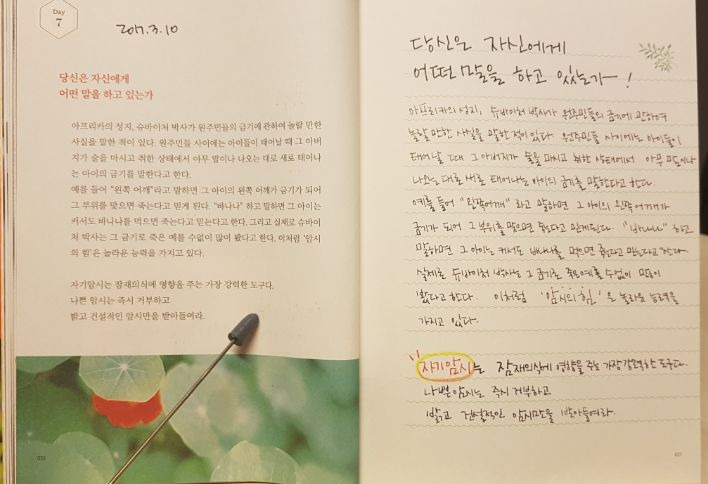 Day
7
2017.3.10
당신은 자신에게
어떤 말을 하고 있는가
아프리카의 성지, 슈바이처 박사가 원주민들의 금기에 관하여 놀랄 만한
사실을 말한 적이 있다. 원주민들 사이에는 아이들이 태어날 때 그 아버
지가 술을 마시고 취한 상태에서 아무 말이나 나오는 대로 새로 태어나
는 아이의 금기를 말한다고 한다.
예를 들어 "왼쪽 어깨"라고 말하면 그 아이의 왼쪽 어깨가 금기가 되어
그 부위를 맞으면 죽는다고 믿게 된다. "바나나" 하고 말하면 그 아이는
커서도 바나나를 먹으면 죽는다고 믿는다고 한다. 그리고 실제로 슈바이
처 박사는 그 금기로 죽은 예를 수없이 많이 봤다고 한다. 이처럼 '암시
의 힘'은 놀라운 능력을 가지고 있다.
자기암시는 잠재의식에 영향을 주는 가장 강력한 도구다.
나쁜 암시는 즉시 거부하고
밝고 건설적인 암시만을 받아들여라.
032
당신은 자신에게
어떤 말을 하고 있는가!
아프리카의 성지, 슈바이처 박사가 원주민들의 금기에 관하여
놀랄 만한 사실을 말한 적이 있다. 원주민들 사이에는 아이들이
태어날 때 그 아버지가 술을 마시고 취한 상태에서 아무 말이나
나오는 대로 새로 태어나는 아이의 금기를 말한다고 한다.
예를 들어 "왼쪽어깨" 라고 말하면 그 아이의 왼쪽 어깨가
금기가 되어 그 부위를 맞으면 죽는다고 믿게된다. "바나나" 하고
말하면 그 아이는 커서도 바나나를 먹으면 죽는다고 믿는다고 한다.
실제로 슈바이처 박사는 그 금기로 죽은예를 수없이 많이
봤다고 한다. 이처럼 '암시의 힘'은 놀라운 능력을
가지고 있다.
자기암시는 잠재의식에 영향을 주는 가장 강력한 도구다.
나쁜 암시는 즉시 거부하고
밝고 건설적인 암시만을 받아들여라.